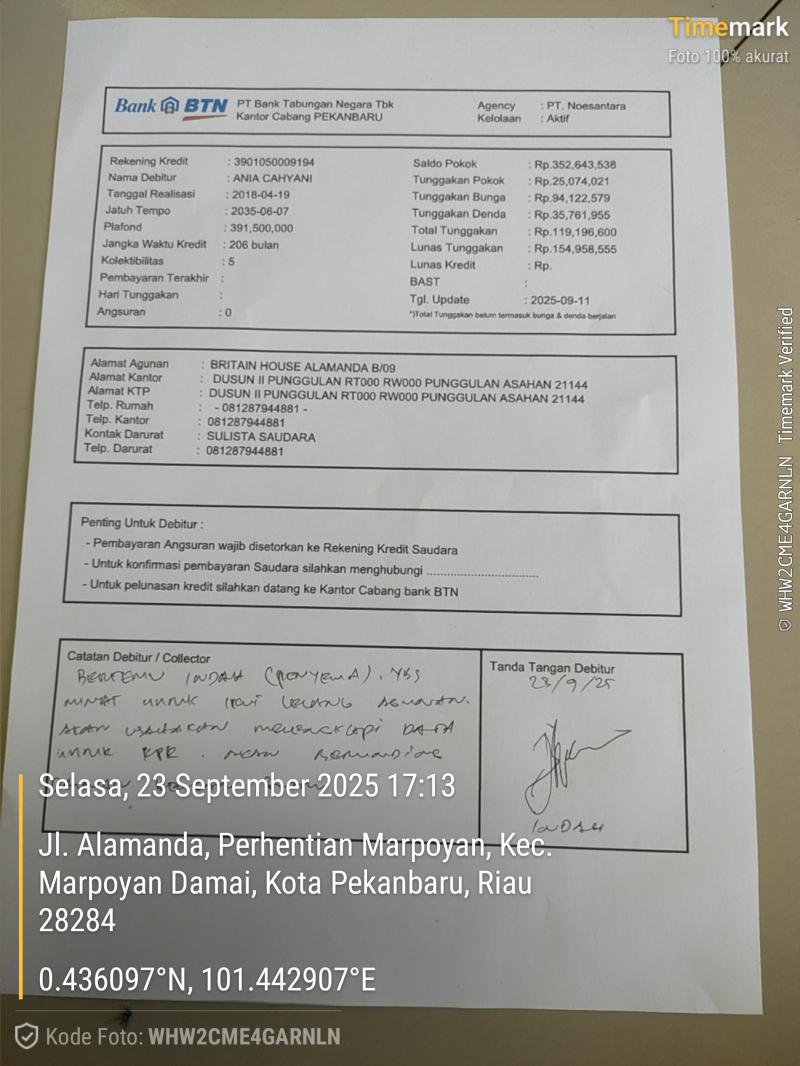 Timemark
Foto 100% akurat
Bank BTN PT Bank Tabungan Negara Tbk
Kantor Cabang PEKANBARU
Agency : PT. Noesantara
Kelolaan : Aktif
Rekening Kredit : 3901050009194
Nama Debitur : ANIA CAHYANI
Tanggal Realisasi : 2018-04-19
Jatuh Tempo : 2035-06-07
Plafond : 391,500,000
Jangka Waktu Kredit : 206 bulan
Kolektibilitas : 5
Pembayaran Terakhir :
Hari Tunggakan :
Angsuran : 0
Saldo Pokok : Rp.352,643,538
Tunggakan Pokok : Rp.25,074,021
Tunggakan Bunga : Rp.94,122,579
Tunggakan Denda : Rp.35,761,955
Total Tunggakan : Rp.119,196,600
Lunas Tunggakan : Rp.154,958,555
Lunas Kredit : Rp.
BAST :
Tgl. Update : 2025-09-11
*)Total Tunggakan belum termasuk bunga & denda berjalan
Alamat Agunan : BRITAIN HOUSE ALAMANDA B/09
Alamat Kantor : DUSUN II PUNGGULAN RT000 RW000 PUNGGULAN ASAHAN 21144
Alamat KTP : DUSUN II PUNGGULAN RT000 RW000 PUNGGULAN ASAHAN 21144
Telp. Rumah : - 081287944881 -
Telp. Kantor : 081287944881
Kontak Darurat : SULISTA SAUDARA
Telp. Darurat : 081287944881
Penting Untuk Debitur :
- Pembayaran Angsuran wajib disetorkan ke Rekening Kredit Saudara
- Untuk konfirmasi pembayaran Saudara silahkan menghubungi ..................................
- Untuk pelunasan kredit silahkan datang ke Kantor Cabang bank BTN
Catatan Debitur / Collector
BERTEMU INDAH (PENYEWA). YBS
MINAT UNTUK IKUT LELANG
AKAN USAHAKAN MELENGKAPI DATA
UNTUK KPR.
Tanda Tangan Debitur
23/9/25
INDAH
Selasa, 23 September 2025 17:13
Jl. Alamanda, Perhentian Marpoyan, Kec.
Marpoyan Damai, Kota Pekanbaru, Riau
28284
0.436097°N, 101.442907°E
Kode Foto: WHW2CME4GARNLN
WHW2CME4GARNLN Timemark Verified